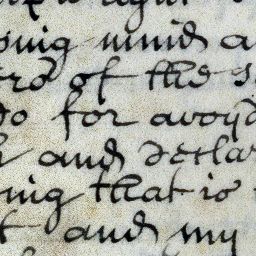 mind a
of the s
do for avoyd
and declar
ing that is
and my